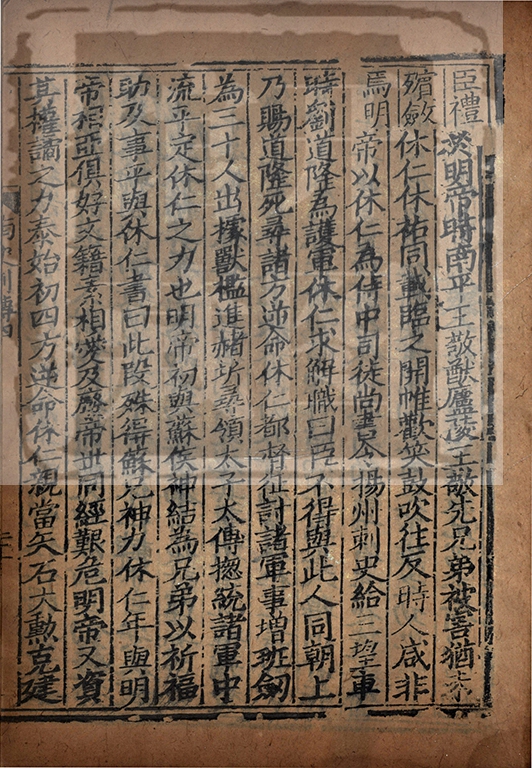 臣禮明帝時南平王敬猷廬陵王敬先兄弟被害猶未
殯斂休仁休祐同載臨之開帷歡笑鼓吹往反時人咸非
焉明帝以休仁為侍中司徒尚書令揚州刺史給三望車
時劉道隆為護軍休仁求解職曰臣不得與此人同朝上
乃賜道隆死尋諸方逆命休仁都督征討諸軍事增班劍
為三十人出據獸檻進赭圻尋領太子太傅揔統諸軍中
流平定休仁之力也明帝初與蘇侯神結為兄弟以祈福
助及事平與休仁書曰此段殊得蘇兄神力休仁年與明
帝相亞俱好文籍素相愛及廢帝世同經艱危明帝又資
其權譎之力泰始初四方逆命休仁親當矢石大勳克建